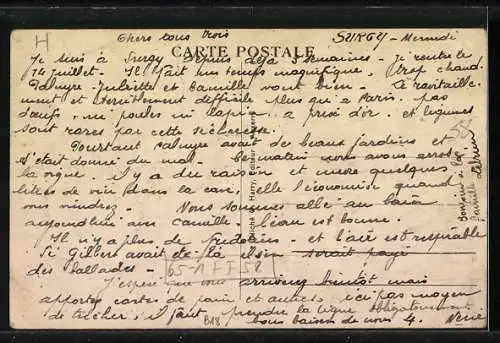 H
Chers tous trois
SURGY - Mercredi
CARTE POSTALE
Je suis à Surgy depuis déjà 3 semaines - je rentre le
14 juillet - Il fait un temps magnifique, trop chaud.
Palmyre - Juliette et Camille vont bien - Le ravitaille-
ment est terriblement difficile plus qu'à Paris. pas
d'oeufs, ni poules ni lapin. à prix d'or. et légumes
sont rares par cette sécheresse.
Pourtant Palmyre avait de beaux jardins et
s'était donné du mal. Ce matin nous avons arrosé
la vigne. il y a du raisin et encore quelques
litres de vin dans la cave, elle l'économise quand
vous viendrez - Nous sommes allé au bain
aujourd'hui avec Camille - l'eau est bonne.
Il n'y a plus de Fridolins - et l'air est respirable
Si Gillou avait été là il s'en serait payé
des ballades -
J'espère que vous arriverez bientôt mais
apportez cartes de pain et autres, ici pas moyen
de tricher, il faut prendre la ligne obligatoirement
bons baisers de nous 4.
65-1 F F 58
B18
Cliché Harry, Editeur
bonjour à
famille Lebrun